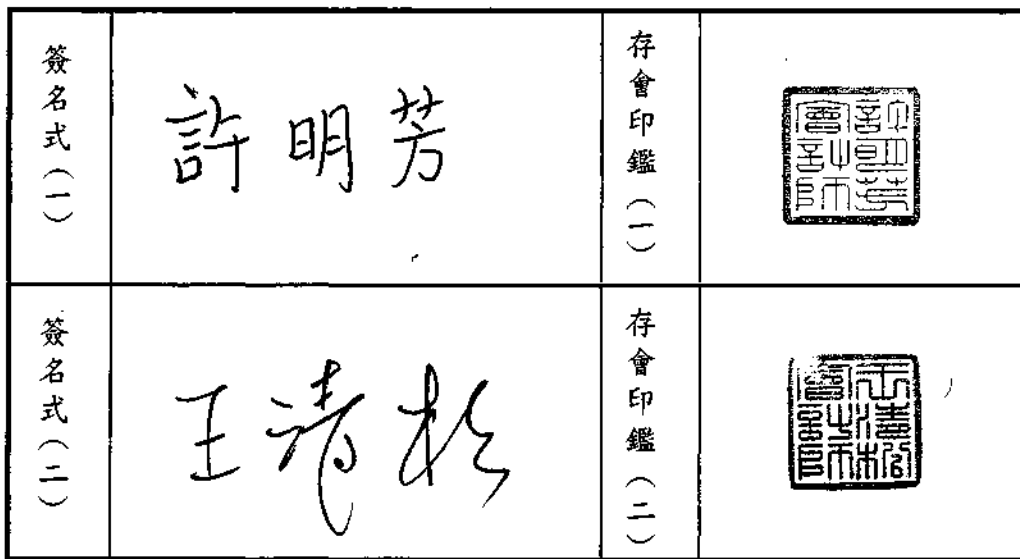 簽名式（一）
許明芳
存會印鑑（一）
許明芳會計師
簽名式（二）
王清松
存會印鑑（二）
王清松會計師